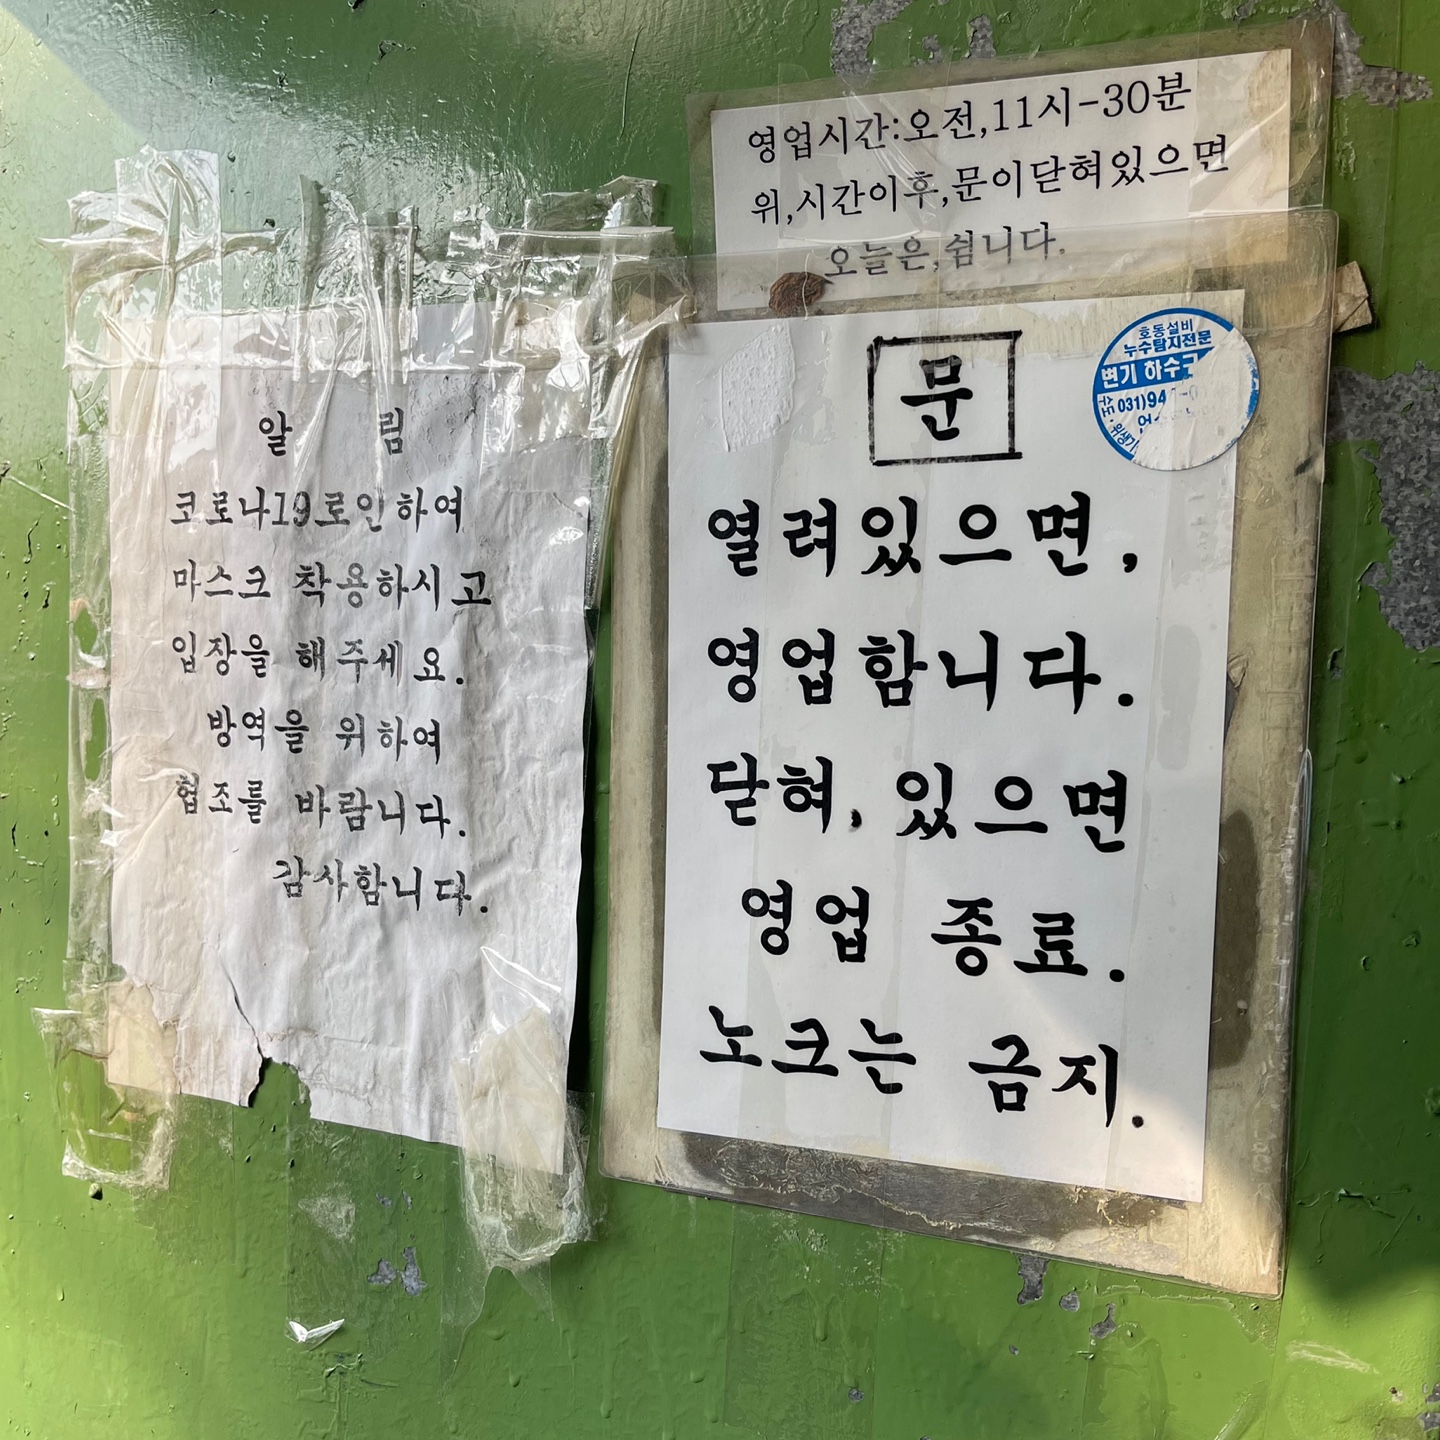 영업시간:오전,11시-30분
위,시간이후,문이닫혀있으면
오늘은,쉽니다.
알 림
코로나19로인하여
마스크 착용하시고
입장을 해주세요.
방역을 위하여
협조를 바랍니다.
감사합니다.
문
열려있으면,
영업합니다.
닫혀. 있으면
영업 종료.
노크는 금지.
호동설비
누수탐지전문
변기 하수구
031)94
수도·위생기